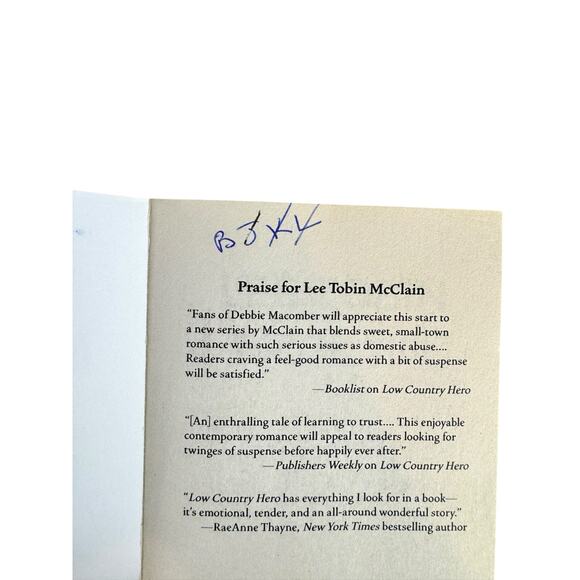 Praise for Lee Tobin McClain
“Fans of Debbie Macomber will appreciate this start to
a new series by McClain that blends sweet, small-town
romance with such serious issues as domestic abuse....
Readers craving a feel-good romance with a bit of suspense
will be satisfied.”
—Booklist on Low Country Hero
“[An] enthralling tale of learning to trust.... This enjoyable
contemporary romance will appeal to readers looking for
twinges of suspense before happily ever after.”
—Publishers Weekly on Low Country Hero
“Low Country Hero has everything I look for in a book—
it’s emotional, tender, and an all-around wonderful story.”
—RaeAnne Thayne, New York Times bestselling author